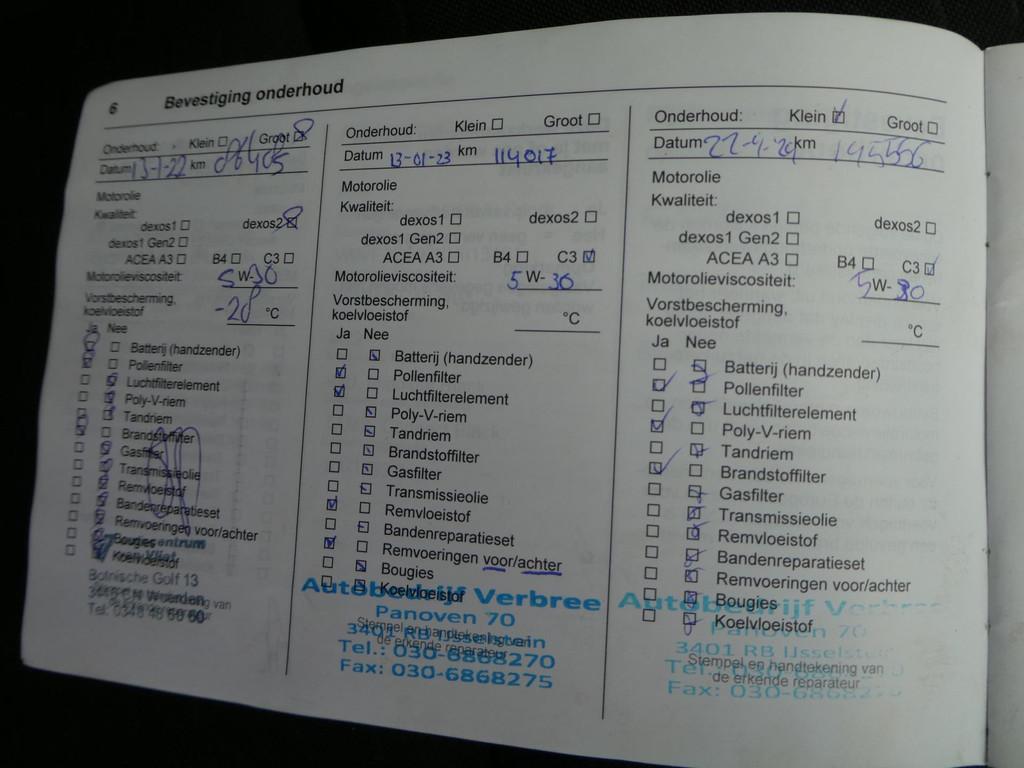 6 Bevestiging onderhoud
Onderhoud: Klein Groot
Datum 13-1-22 km
Motorolie
Kwaliteit:
dexos1 dexos2
dexos1 Gen2
ACEA A3 B4 C3
Motorolieviscositeit: 5W30
Vorstbescherming,
koelvloeistof -28 °C
Ja Nee
Batterij (handzender)
Pollenfilter
Luchtfilterelement
Poly-V-riem
Tandriem
Brandstoffilter
Gasfilter
Transmissieolie
Remvloeistof
Bandenreparatieset
Remvoeringen voor/achter
Bougies
Koelvloeistof
Botnische Golf 13
3446 CN Woerden
Tel. 0348 48 60 60
Onderhoud: Klein Groot
Datum 13-01-23 km 114017
Motorolie
Kwaliteit:
dexos1 dexos2
dexos1 Gen2
ACEA A3 B4 C3
Motorolieviscositeit: 5 W- 30
Vorstbescherming,
koelvloeistof °C
Ja Nee
Batterij (handzender)
Pollenfilter
Luchtfilterelement
Poly-V-riem
Tandriem
Brandstoffilter
Gasfilter
Transmissieolie
Remvloeistof
Bandenreparatieset
Remvoeringen voor/achter
Bougies
Koelvloeistof
Autobedrijf Verbree
Panoven 70
Stempel en handtekening van
3401 RB IJsselstein
de erkende reparateur
Tel.: 030-6868270
Fax: 030-6868275
Onderhoud: Klein Groot
Datum 22-4-24 km 145556
Motorolie
Kwaliteit:
dexos1 dexos2
dexos1 Gen2
ACEA A3 B4 C3
Motorolieviscositeit: 5W-30
Vorstbescherming,
koelvloeistof °C
Ja Nee
Batterij (handzender)
Pollenfilter
Luchtfilterelement
Poly-V-riem
Tandriem
Brandstoffilter
Gasfilter
Transmissieolie
Remvloeistof
Bandenreparatieset
Remvoeringen voor/achter
Bougies
Koelvloeistof
Autobedrijf Verbree
Panoven 70
3401 RB IJsselstein
Stempel en handtekening van
de erkende reparateur
Fax: 030-6868275